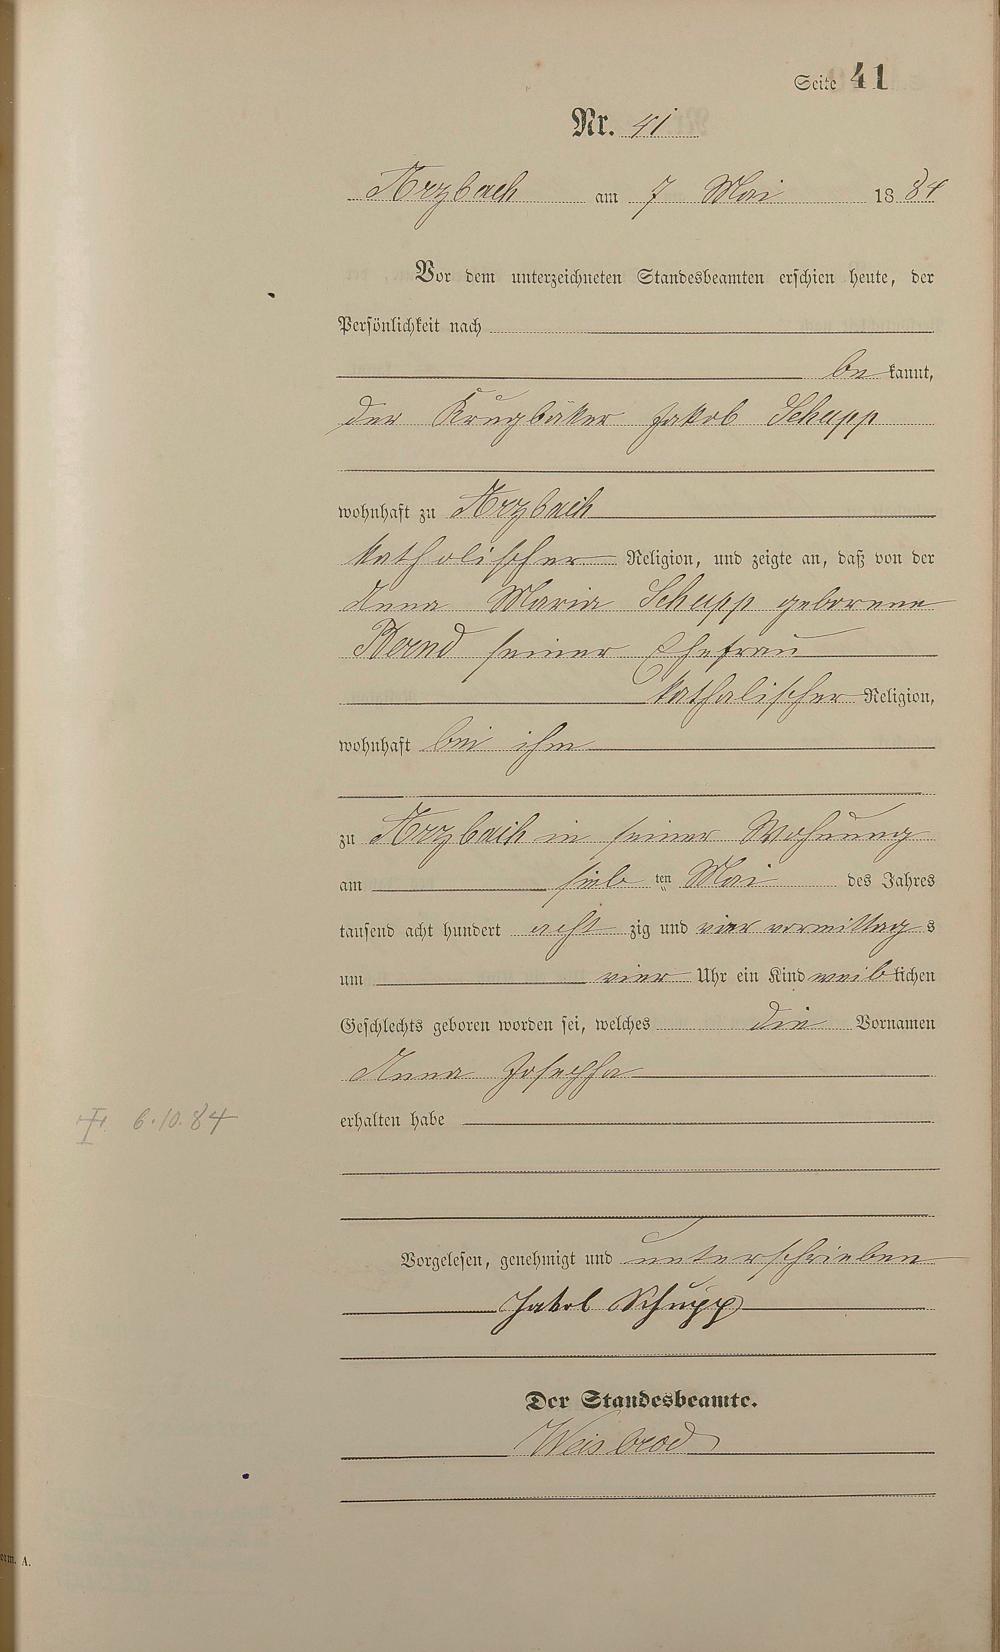 Seite 41
Nr. 41
Arzbach am 7 Mai 1884
Vor dem unterzeichneten Standesbeamten erschien heute, der
Persönlichkeit nach
be kannt,
der Krugbäker Jakob Schupp
wohnhaft zu Arzbach
katholischer Religion, und zeigte an, daß von der
Anna Maria Schupp geborene
Bernd seiner Ehefrau
katholischer Religion,
wohnhaft bei ihm
zu Arzbach in seiner Wohnung
am sieb ten Mai des Jahres
tausend acht hundert acht zig und vier vormittag s
um vier Uhr ein Kind weib lichen
Geschlechts geboren worden sei, welches die Vornamen
Anna Josepha
† 6.10.84
erhalten habe
Vorgelesen, genehmigt und unterschrieben
Jakob Schupp
Der Standesbeamte.
Weisbrod
A.